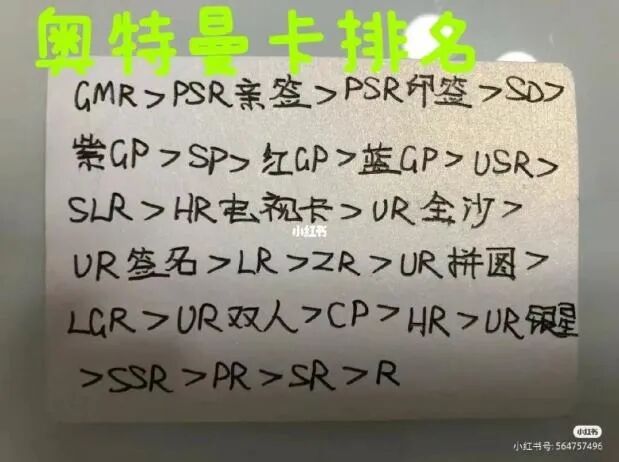 奥特曼卡排名
GMR>PSR亲签>PSR印签>SD>
紫GP>SP>红GP>蓝GP>USR>
SLR>HR电视卡>UR金沙>
小红书
UR签名>LR>ZR>UR拼图>
LGR>UR双人>CP>HR>UR银星
>SSR>PR>SR>R
小红书
小红书号: 564757496